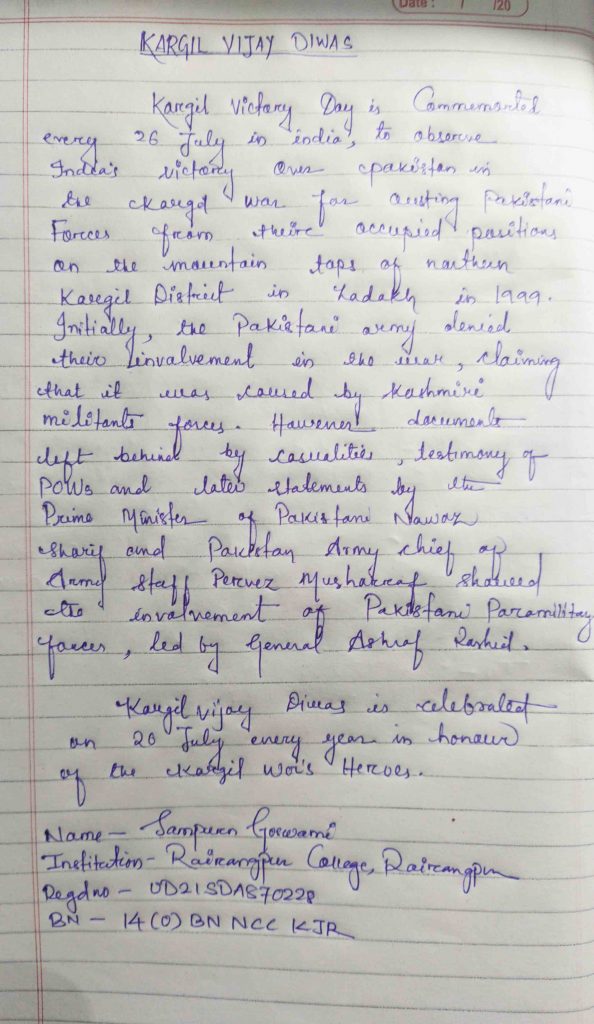 Date : / /20
KARGIL VIJAY DIWAS
Kargil Victory Day is Commemorted
every 26 July in india, to observe
India's victory over pakistan in
the kargil war for ousting Pakistani
Forces from their occupied positions
on the mountain tops of northern
Karegil District in Ladakh in 1999.
Initially, the Pakistani army denied
their involvement in the war, claiming
that it was caused by Kashmiri
militants forces. However documents
left behind by casualities, testimony of
POWs and later statements by the
Prime Minister of Pakistani Nawaz
sharif and Pakistan Army chief of
Army staff Pervez Musharraf showed
the involvement of Pakistani Paramilitay
forces, led by General Ashraf Rashid.
Kargil vijay Diwas is celebrated
on 26 July every year in honour
of the Kargil War's Heroes.
Name - Sampurn Goswami
Institution - Rairangpur College, Rairangpur
Regd no - OD21SDA870228
BN - 14 (O) BN NCC KJR